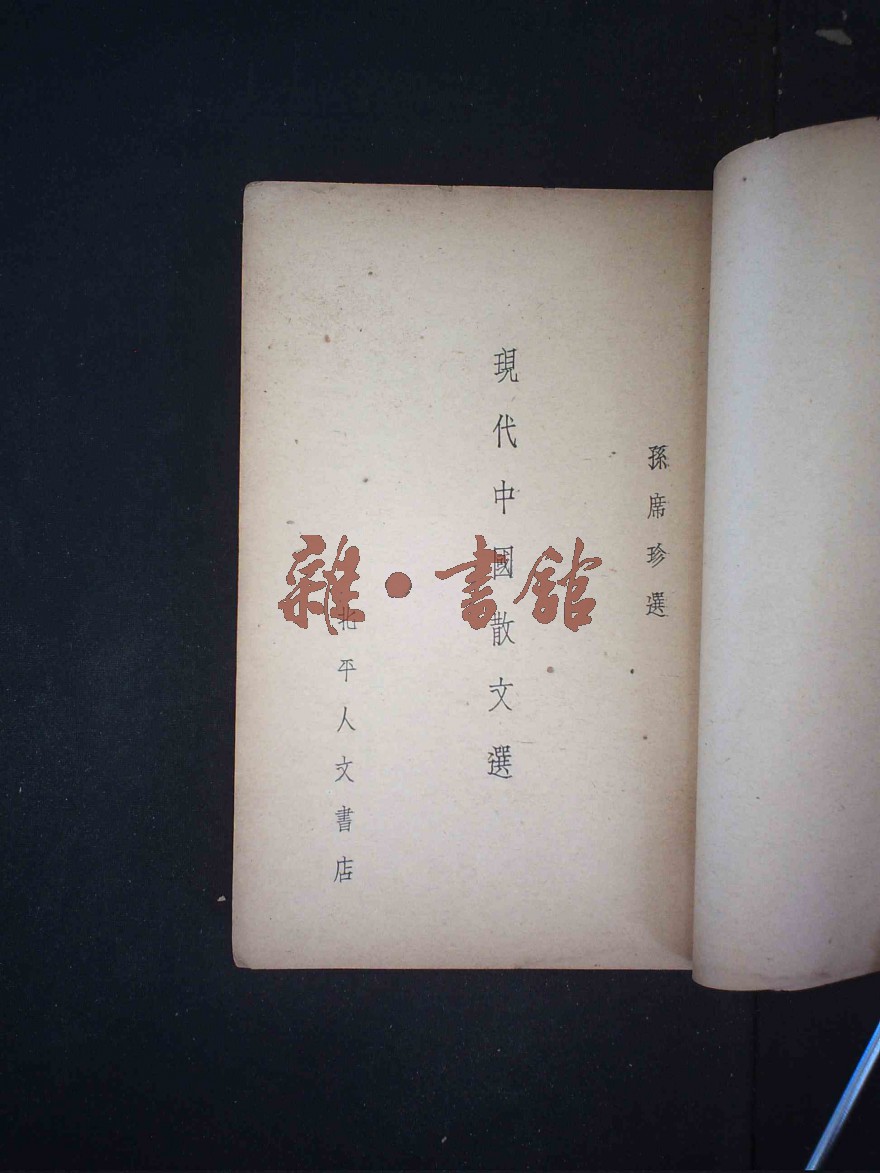 孫席珍選
現代中國散文選
北平人文書店
雜·書館